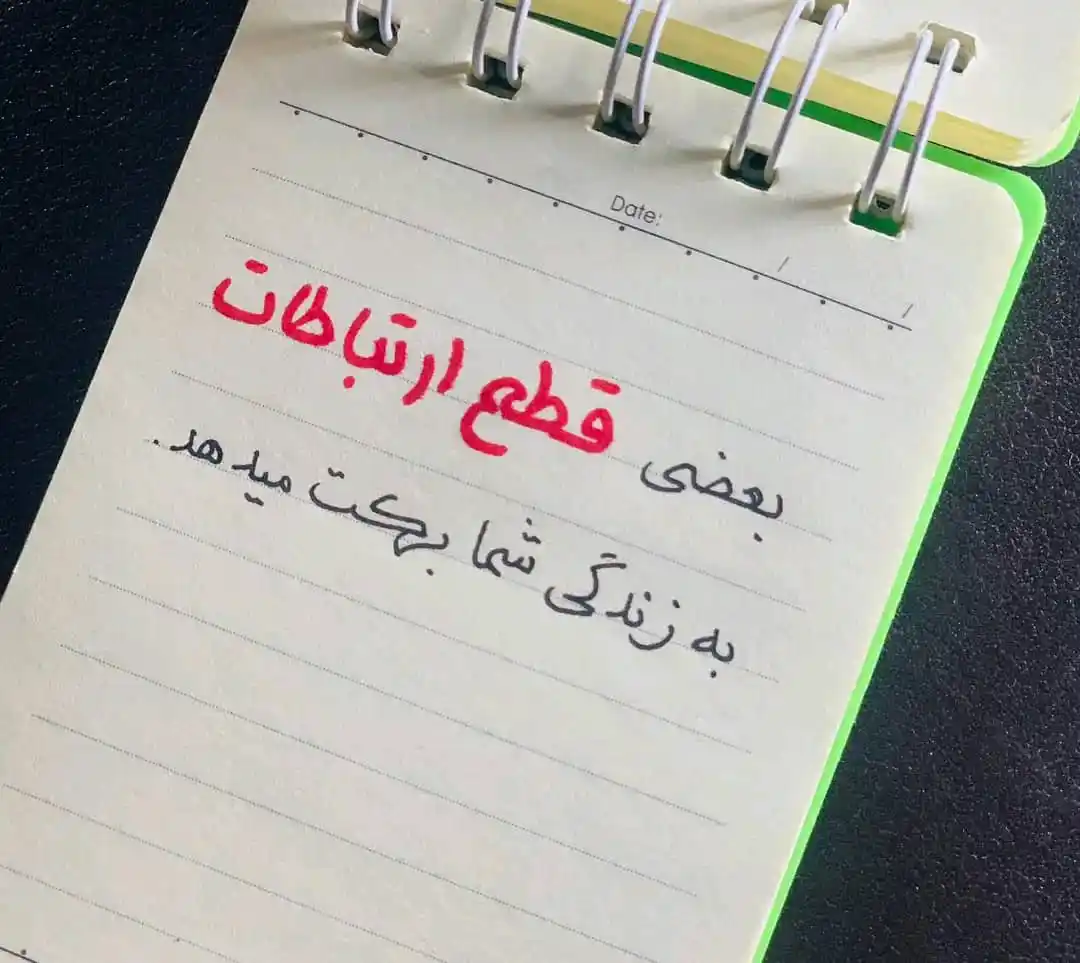 Date: / /
بعضی قطع ارتباطات
به زندگی شما برکت میدهد.